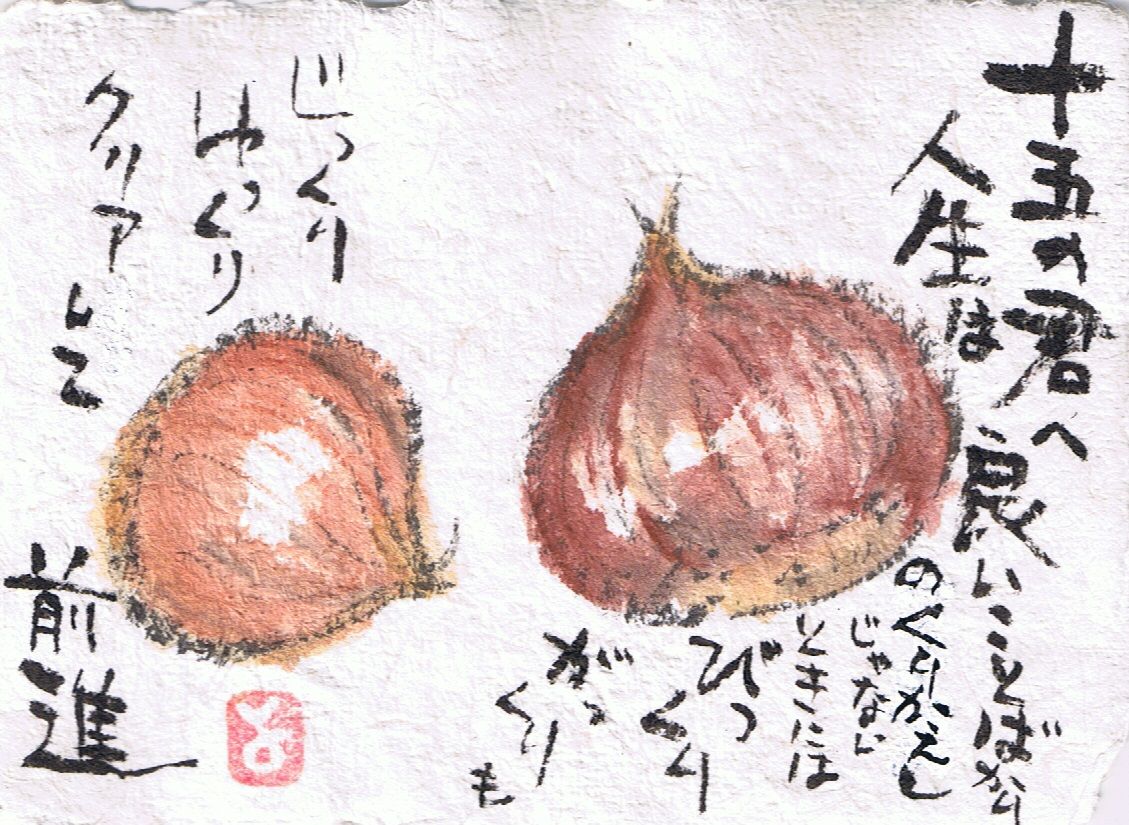 十五の君へ
人生は良いことばかり
のくりかえし
じゃない
ときには
びっくり
がっくりも
じっくり
ゆっくり
クリアして
前進